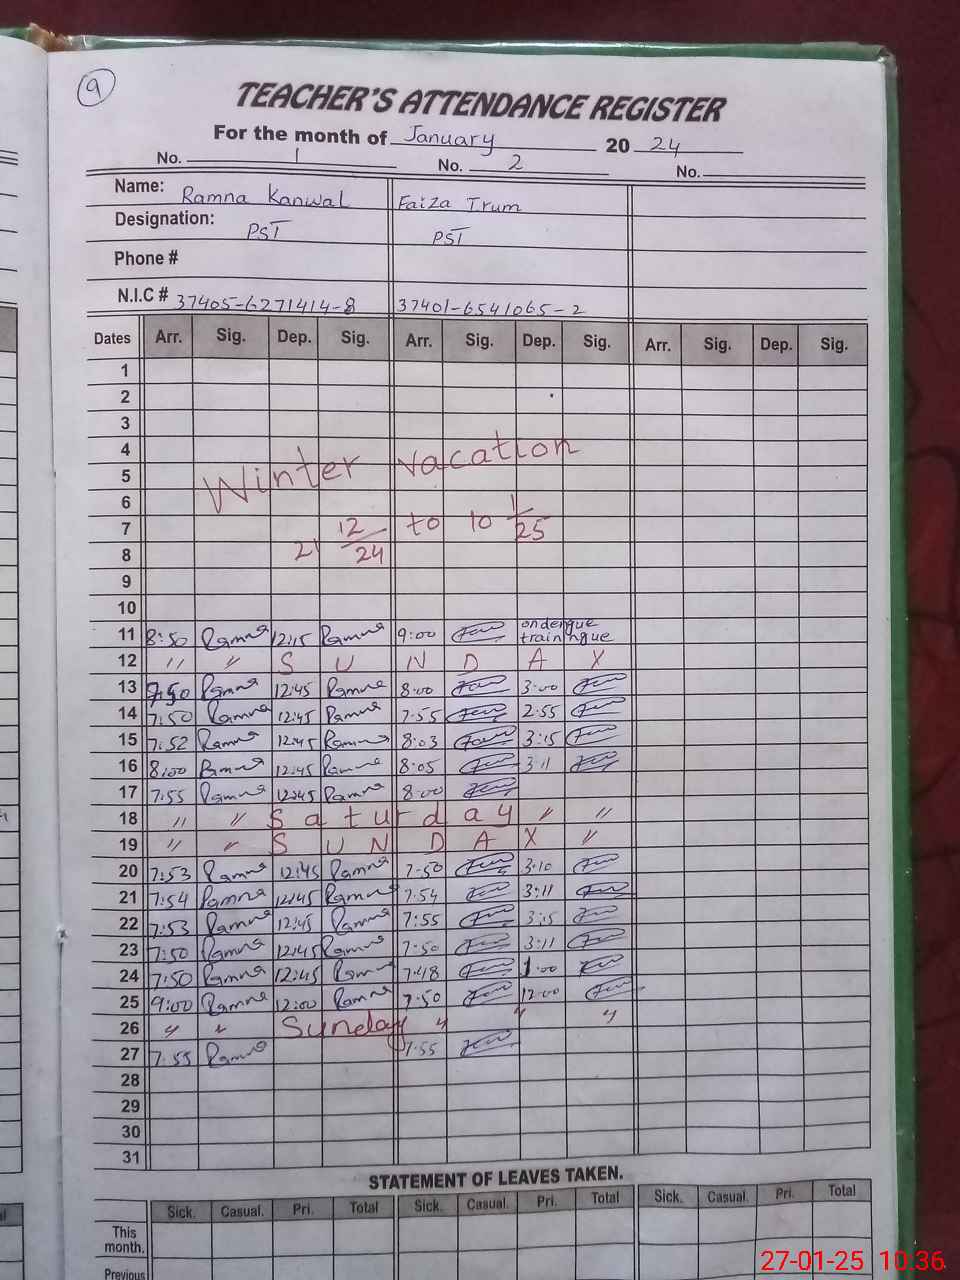 9
TEACHER'S ATTENDANCE REGISTER
For the month of January 20 24
No. 1 No. 2 No.
Name: Ramna Kanwal Faiza Irum
Designation: PST PST
Phone #
N.I.C # 37405-6271414-8 37401-6541065-2
Dates Arr. Sig. Dep. Sig. Arr. Sig. Dep. Sig. Arr. Sig. Dep. Sig.
1
2
3
4
5
Winter vacation
6
7
21 12/24 to 10 1/25
8
9
10
11 8:50 Ramna 12:15 Ramna 9:00 training
12 〃 〃 S U N D A Y
13 7:50 Ramna 12:45 Ramna 8:00 3:00
14 7:50 Ramna 12:45 Ramna 7:55 2:55
15 7:52 Ramna 12:45 Ramna 8:03 3:15
16 8:00 Ramna 12:45 Ramna 8:05 3:11
17 7:55 Ramna 12:45 Ramna 8:00
18 〃 〃 S a t u r d a y 〃 〃
19 〃 〃 S U N D A Y 〃
20 7:53 Ramna 12:45 Ramna 7:50 3:10
21 7:54 Ramna 12:45 Ramna 7:54 3:11
22 7:53 Ramna 12:45 Ramna 7:55 3:15
23 7:50 Ramna 12:45 Ramna 7:50 3:11
24 7:50 Ramna 12:45 Ramna 7:48 1:00
25 9:00 Ramna 12:00 Ramna 7:50 12:00
26 〃 〃 Sunday 〃 〃 〃
27 7:55 Ramna 7:55
28
29
30
31
STATEMENT OF LEAVES TAKEN.
Sick. Casual. Pri. Total Sick. Casual. Pri. Total Sick. Casual. Pri. Total
This
month.
Previous
27-01-25 10:36